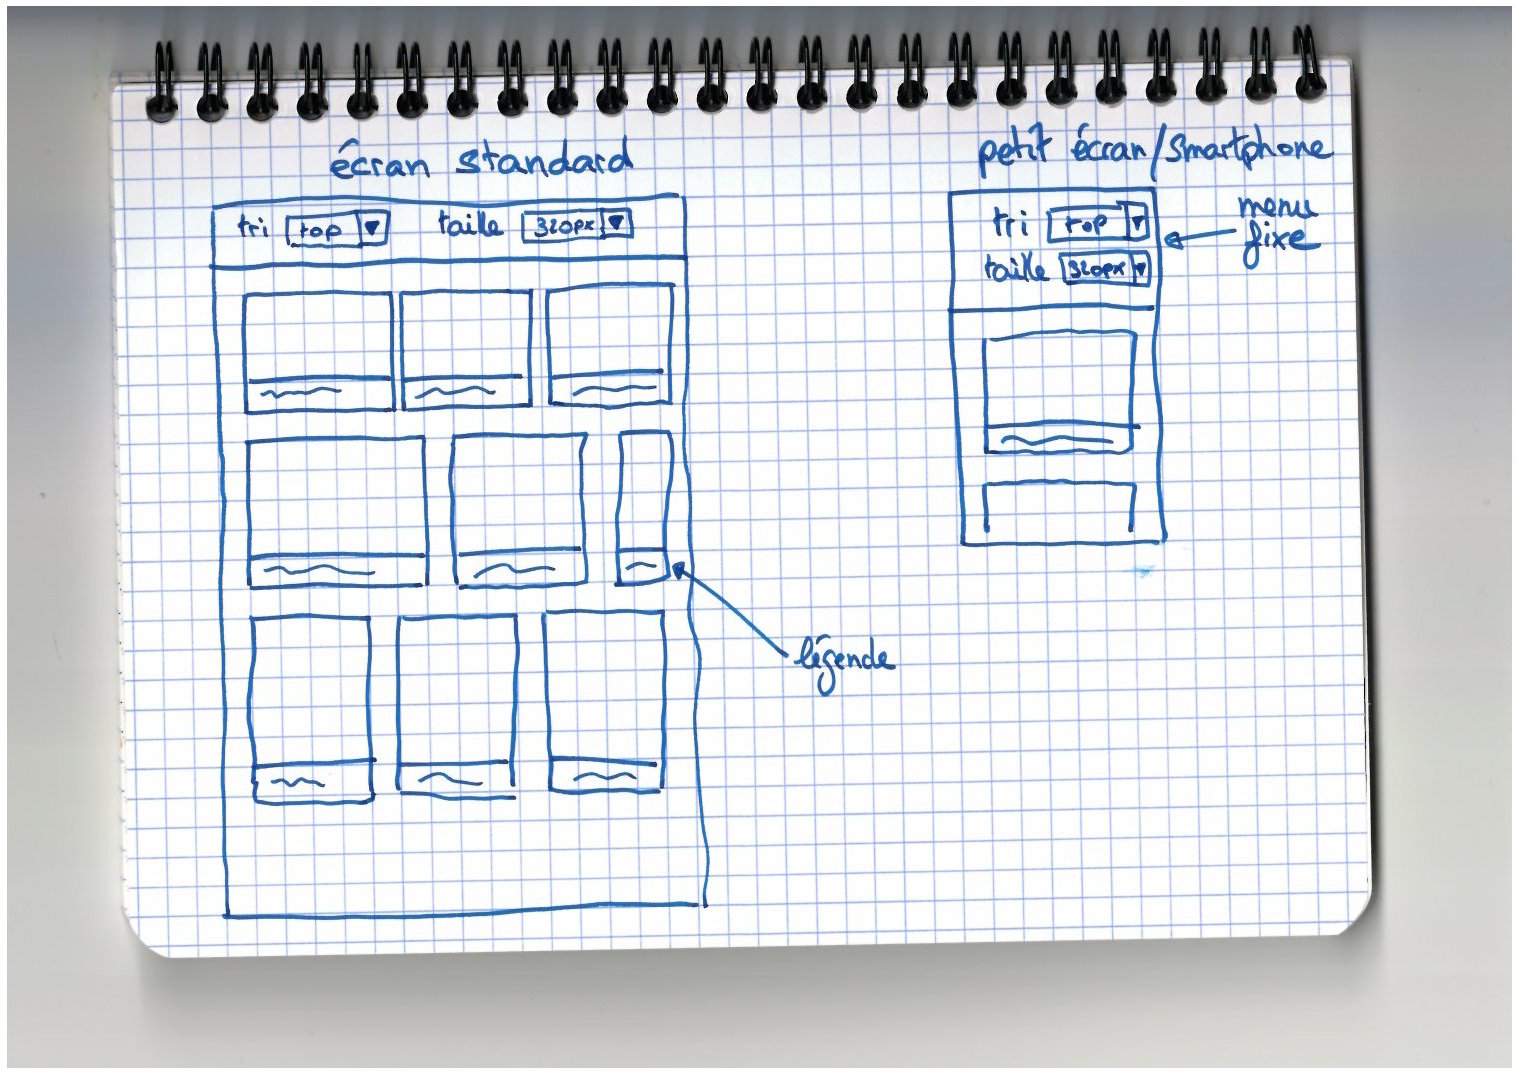 écran standard
tri top taille 320px
légende
petit écran/smartphone
tri top
taille 320px
menu
fixe